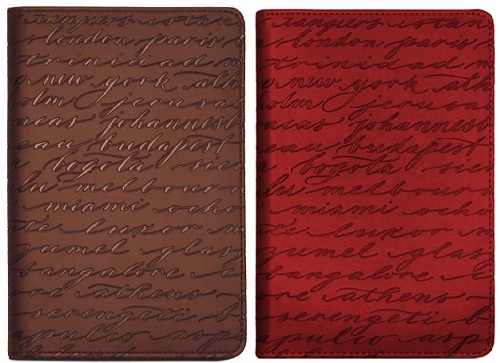 tangiers istan
london paris
trinidad m
new york ath
olm jerusa
acas johannesb
eau budapest
bogota sie
lu melbour
miami ocho
te luxor m
gumel glas
bangalore
ore athens
serengeti b
apulco asp
tangiers istan
london paris
trinidad m
new york ath
olm jerusa
acas johannesb
eau budapest
bogota sie
lu melbour
miami ocho
te luxor m
gumel glas
bangalore
ore athens
serengeti b
apulco asp